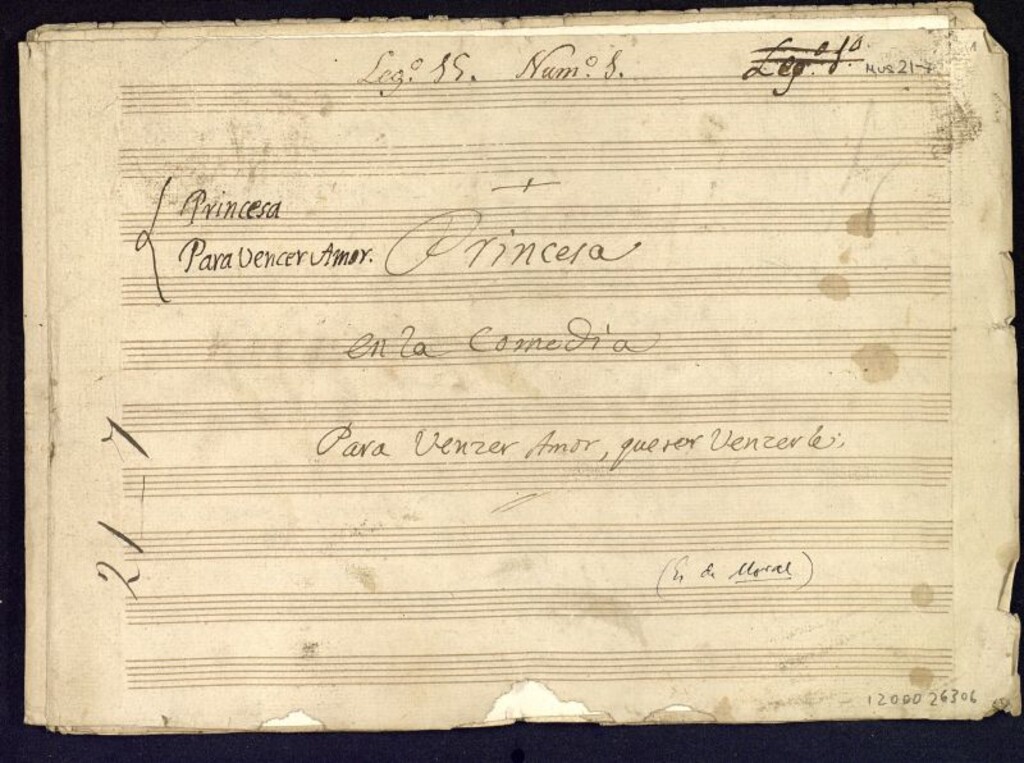 Leg.º 15. Num.º 1.
Leg.º 1.º
MUS 21-7
Princesa
Para Vencer Amor.
Princesa
en la Comedia
Para Venzer Amor, querer Venzerle;
21-7
(Es de Moral)
1200026306